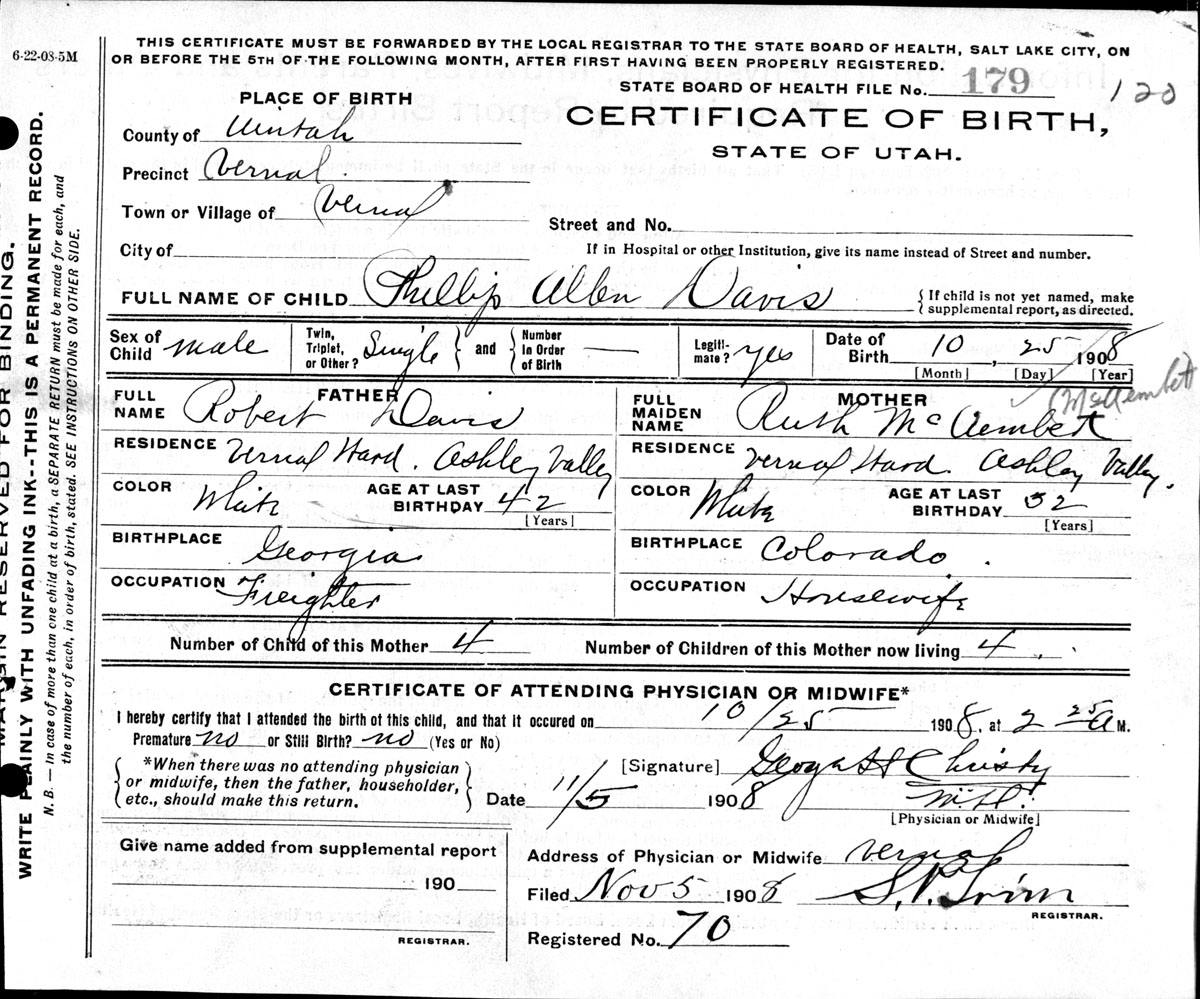 6-22-08-5M
THIS CERTIFICATE MUST BE FORWARDED BY THE LOCAL REGISTRAR TO THE STATE BOARD OF HEALTH, SALT LAKE CITY, ON
OR BEFORE THE 5TH OF THE FOLLOWING MONTH, AFTER FIRST HAVING BEEN PROPERLY REGISTERED.
STATE BOARD OF HEALTH FILE No. 179
120
CERTIFICATE OF BIRTH,
STATE OF UTAH.
PLACE OF BIRTH
County of Uintah
Precinct Vernal
Town or Village of Vernal
Street and No.
City of
If in Hospital or other Institution, give its name instead of Street and number.
FULL NAME OF CHILD Phillip Allen Davis
{ If child is not yet named, make
supplemental report, as directed.
Sex of Child male
Twin, Triplet, or Other? Single } and { Number in Order of Birth —
Legitimate? yes
Date of Birth 10, 25 1908
[Month] [Day] [Year]
FATHER
FULL NAME Robert Davis
RESIDENCE Vernal Ward. Ashley Valley
COLOR White
AGE AT LAST BIRTHDAY 42
[Years]
BIRTHPLACE Georgia
OCCUPATION Freighter
MOTHER
FULL MAIDEN NAME Ruth
RESIDENCE Vernal Ward. Ashley Valley.
COLOR White
AGE AT LAST BIRTHDAY 32
[Years]
BIRTHPLACE Colorado.
OCCUPATION Housewife
Number of Child of this Mother 4
Number of Children of this Mother now living 4.
CERTIFICATE OF ATTENDING PHYSICIAN OR MIDWIFE*
I hereby certify that I attended the birth of this child, and that it occured on 10/25 1908, at 2 25 A M.
Premature no or Still Birth? no (Yes or No)
{ *When there was no attending physician
or midwife, then the father, householder,
etc., should make this return. }
[Signature] George H Christy
Date 11/5 1908 M.D.
[Physician or Midwife]
Give name added from supplemental report
190
REGISTRAR.
Address of Physician or Midwife Vernal
Filed Nov 5 1908
REGISTRAR.
Registered No. 70
MARGIN RESERVED FOR BINDING.
WRITE PLAINLY WITH UNFADING INK--THIS IS A PERMANENT RECORD.
N. B. — In case of more than one child at a birth, a SEPARATE RETURN must be made for each, and
the number of each, in order of birth, stated. SEE INSTRUCTIONS ON OTHER SIDE.